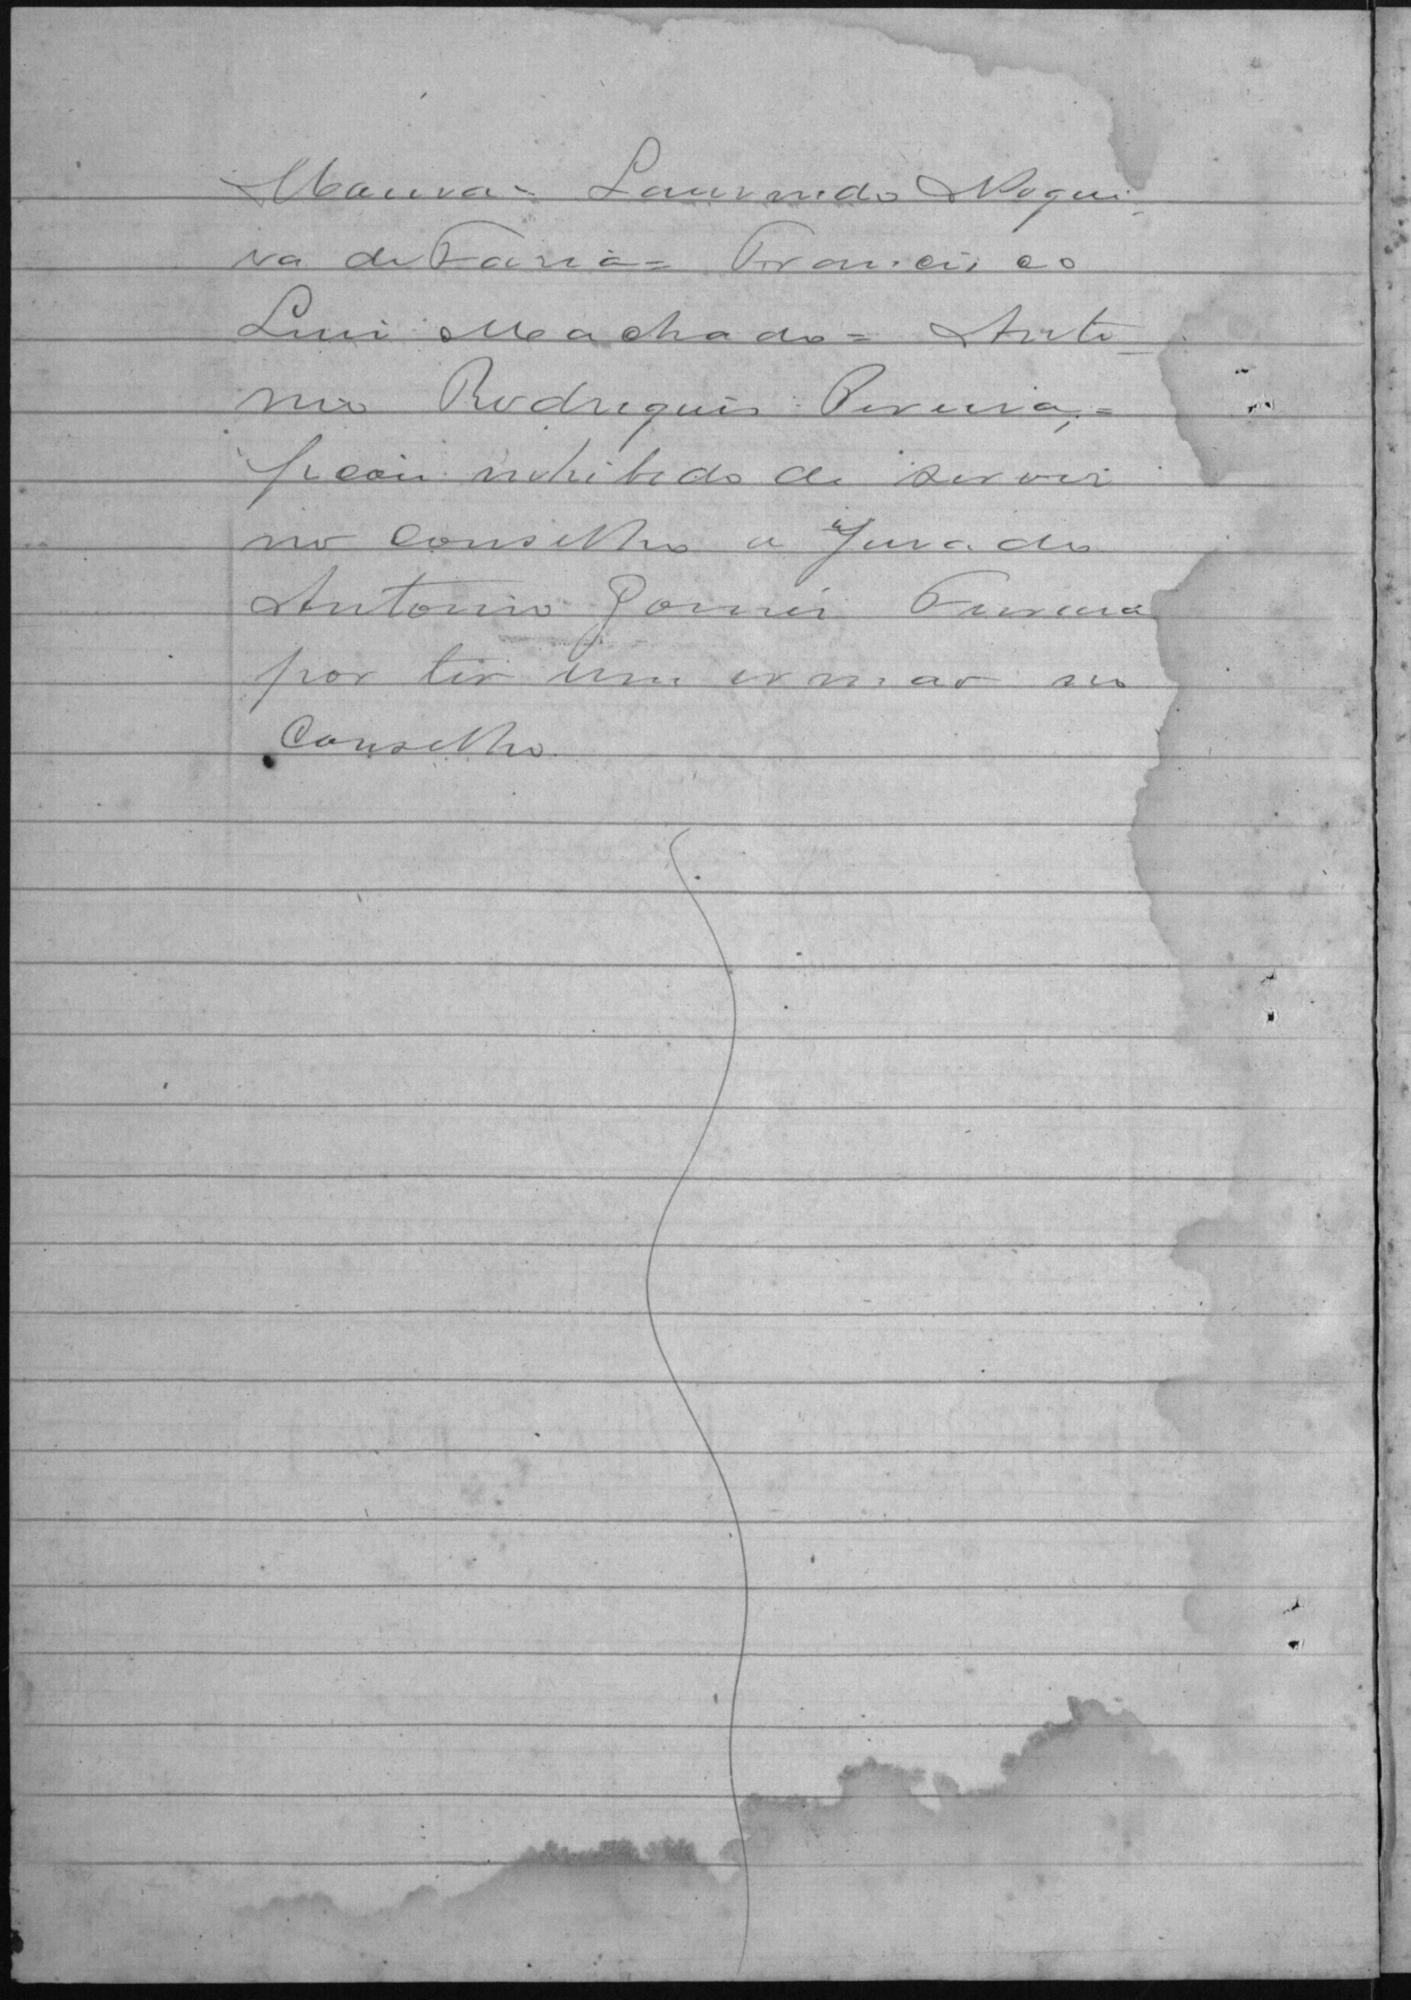 Moura = Lourenedo Nogui-
ra de Faria = Francisco
Luis Machado = Anto-
nio Rodrigues Pereira, =
ficou inhibido de servir
no conselho o Jurado
Antonio Gomes Ferreira
por ter um irmao no
Conselho.